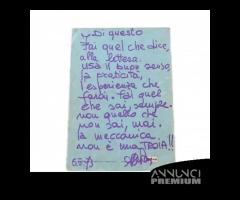 Di questo
Fai quel che dice,
alla lettera.
usa il buon senso,
la praticità,
l'esperienza che
farai. Fai quel
che sai, sempre.
non quello che
non sai, mai
la meccanica
non è una TROIA!!
ANNUNCI
PREMIUM